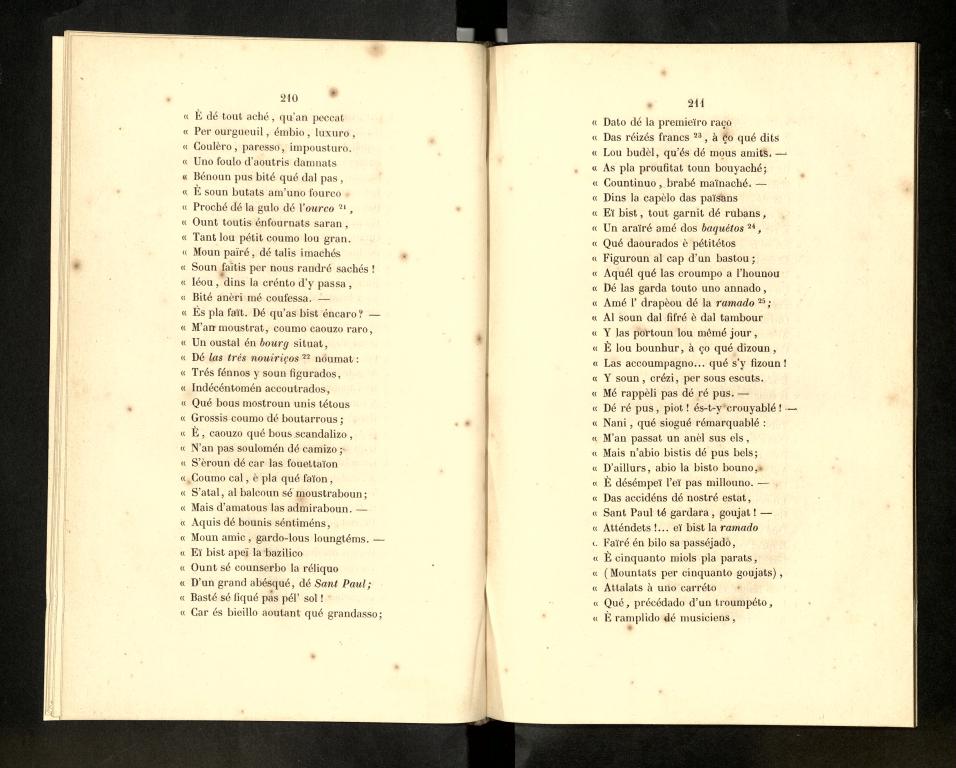 210
« È dé tout aché, qu'an peccat
« Per ourgueuil, émbio, luxuro,
« Coulèro, paresso, impousturo.
« Uno foulo d'aoutris damnats
« Bénoun pus bité qué dal pas,
« È soun butats am'uno fourco
« Proché dé la gulo dé l'ourco 21,
« Ount toutis énfournats saran,
« Tant lou pétit coumo lou gran.
« Moun païré, dé talis imachés
« Soun faïtis per nous randré sachés!
« Iéou, dins la crénto d'y passa,
« Bité anèri mé coufessa. —
« És pla faït. Dé qu'as bist éncaro? —
« M'an moustrat, coumo caouzo raro,
« Un oustal én bourg situat,
« Dé las trés nouiriços 22 noumat:
« Trés fénnos y soun figurados,
« Indécéntomén accoutrados,
« Qué bous mostroun unis tétous
« Grossis coumo dé boutarrous;
« È, caouzo qué bous scandalizo,
« N'an pas soulomén dé camizo;
« S'èroun dé car las fouettaïon
« Coumo cal, è pla qué faïon,
« S'atal, al balcoun sé moustraboun;
« Mais d'amatous las admiraboun. —
« Aquis dé bounis séntiméns,
« Moun amic, gardo-lous loungtéms. —
« Eï bist apeï la bazilico
« Ount sé counserbo la réliquo
« D'un grand abésqué, dé Sant Paul;
« Basté sé fiqué pas pél' sol!
« Car és bieillo aoutant qué grandasso;
211
« Dato dé la premieïro raço
« Das réizés francs 23, à ço qué dits
« Lou budèl, qu'és dé mous amits. —
« As pla proufitat toun bouyaché;
« Countinuo, brabé maïnaché. —
« Dins la capèlo das païsans
« Eï bist, tout garnit dé rubans,
« Un araïré amé dos baquétos 24,
« Qué daourados è pétitétos
« Figuroun al cap d'un bastou;
« Aquél qué las croumpo a l'hounou
« Dé las garda touto uno annado,
« Amé l' drapèou dé la ramado 25;
« Al soun dal fifré è dal tambour
« Y las portoun lou mêmé jour,
« È lou bounhur, à ço qué dizoun,
« Las accoumpagno... qué s'y fizoun!
« Y soun, crézi, per sous escuts.
« Mé rappèli pas dé ré pus. —
« Dé ré pus, piot! és-t-y crouyablé! —
« Nani, qué siogué rémarquablé:
« M'an passat un anèl sus els,
« Mais n'abio bistis dé pus bels;
« D'aillurs, abio la bisto bouno,
« È désémpeï l'eï pas millouno. —
« Das accidéns dé nostré estat,
« Sant Paul té gardara, goujat! —
« Atténdets!... eï bist la ramado
« Faïré én bilo sa passéjado,
« È cinquanto miols pla parats,
« (Mountats per cinquanto goujats),
« Attalats à uno carréto
« Qué, précédado d'un troumpéto,
« È ramplido dé musiciens,